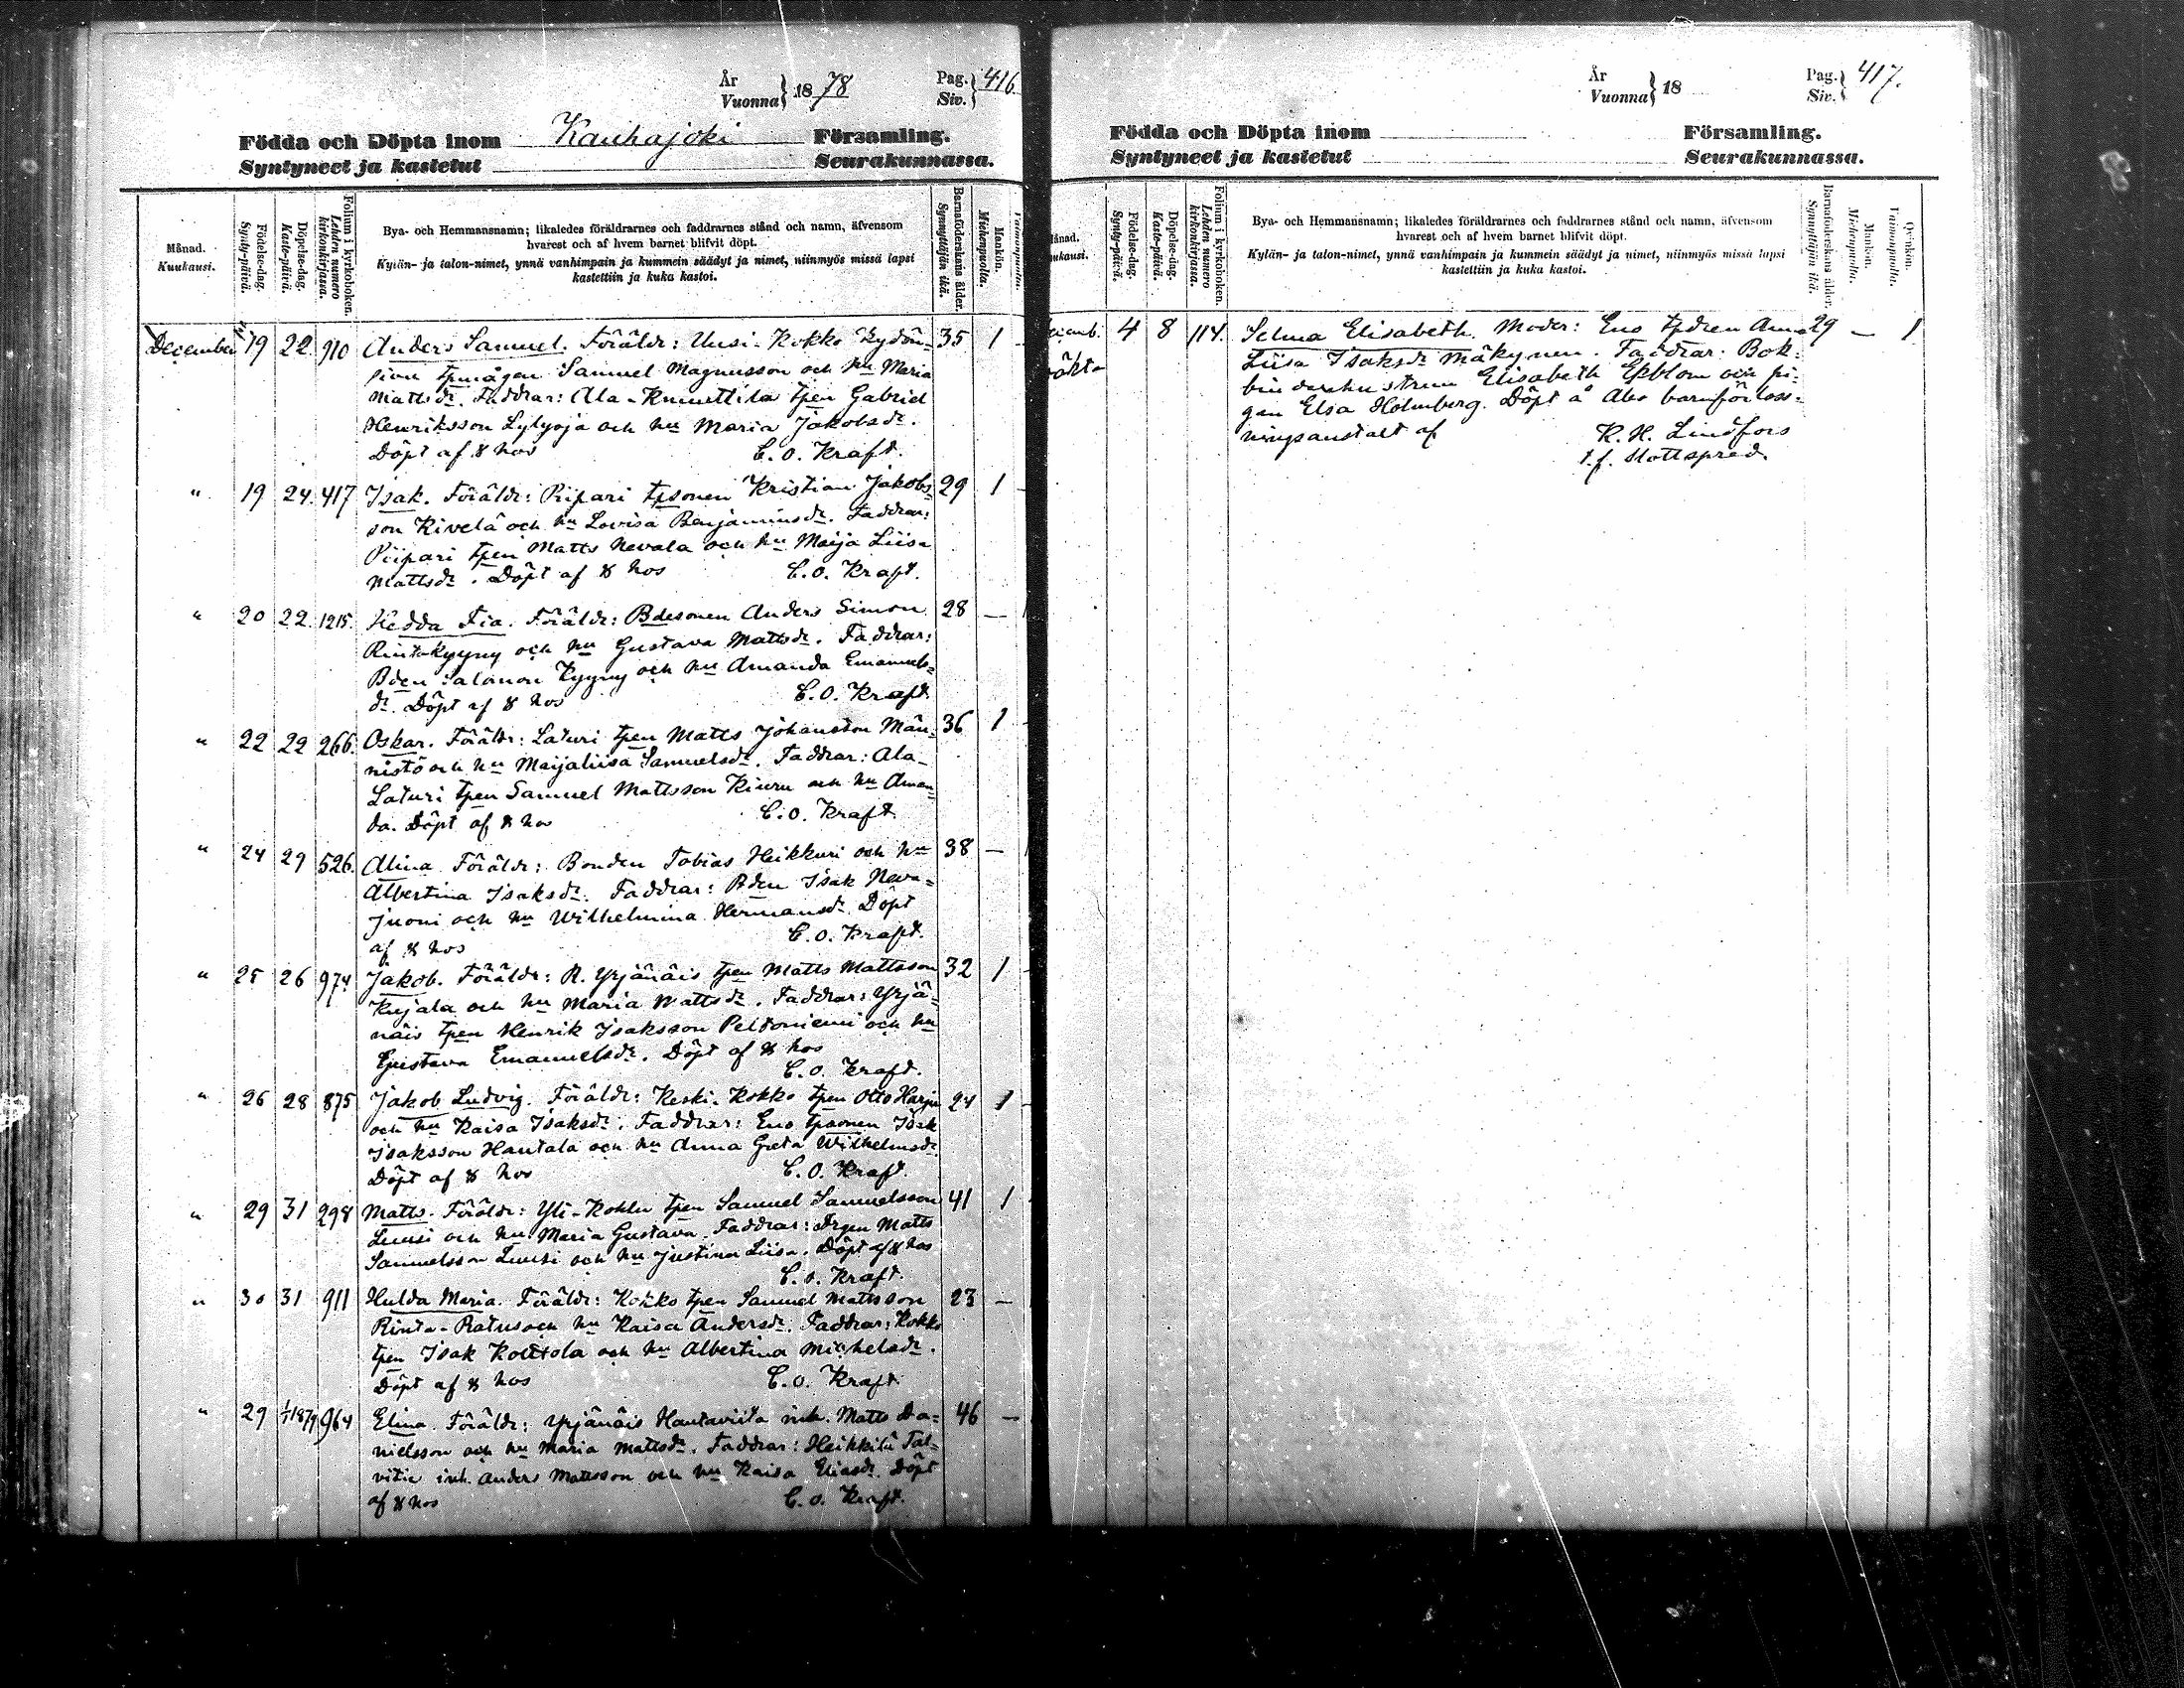 År
Vuonna } 1878
Pag.
Siv. } 416
Födda och Döpta inom Kauhajoki Församling.
Syntyneet ja kastetut Seurakunnassa.
Månad.
Kuukausi.
Födelse-dag.
Synty-päivä.
Döpelse-dag.
Kaste-päivä.
Folium i kyrkoboken.
Lehden numero kirkonkirjassa.
Bya- och Hemmansnamn; likaledes föräldrarnes och faddrarnes stånd och namn, äfvensom
hvarest och af hvem barnet blifvit döpt.
Kylän- ja talon-nimet, ynnä vanhimpain ja kummein säädyt ja nimet, niinmyös missä lapsi
kastettiin ja kuka kastoi.
Barnaföderskans ålder.
Synnyttäjän ikä.
Mankön.
Miehenpuolta.
Vaimonpuolta.
December 19 22 910 Anders Samuel. Föräldr: Uusi-Kokko Kydön= 35 1
sivu tpmågen Samuel Magnusson och hu Maria
Mattsdr. Faddrar: Ala-Knuuttila tpen Gabriel
Henriksson Lylyoja och hu Maria Jakobsdr.
Döpt af & hos C. O. Kraft.
" 19 24. 417 Isak. Föräldr: Piipari tpsonen Kristian Jakobs= 29 1
son Kivelä och hu Lovisa Benjaminsdr. Faddrar:
Piipari tpen Matts Nevala och hu Maija Liisa
Mattsdr. Döpt af & hos C. O. Kraft.
" 20 22. 1215. Hedda Fia. Föräldr: Bdesonen Anders Simon 28 —
Rintakyyny och hu Gustava Mattsdr. Faddrar:
Bden Salomon Kyyny och hu Amanda Emanuels=
dr. Döpt af & hos C. O. Kraft.
" 22 22 266. Oskar. Föräldr: Laturi tpen Matts Johansson Män= 36 1
nistö och hu Maijaliisa Samuelsdr. Faddrar: Ala-
Laturi tpen Samuel Mattsson Kiuru och hu Aman=
da. Döpt af & hos C. O. Kraft.
" 24 29 526. Alina. Föräldr: Bonden Tobias Heikkuri och hu 38 —
Albertina Isaksdr. Faddrar: Bden Isak Neva=
juoni och hu Wilhelmina Hermansdr. Döpt
af & hos C. O. Kraft.
" 25 26 974 Jakob. Föräldr: R. Yrjänäis tpen Matts Mattsson 32 1
Kujala och hu Maria Mattsdr. Faddrar: Yrjä=
näis tpen Henrik Isaksson Peltoniemi och hu
Gustava Emanuelsdr. Döpt af & hos
C. O. Kraft.
" 26 28 875 Jakob Ludvig. Föräldr: Keski-Kokko tpen Otto Harju 24 1
och hu Kaisa Isaksdr. Faddrar: Eno tpsonen Isak
Isaksson Hautala och hu Anna Greta Wilhelmsdr.
Döpt af & hos C. O. Kraft.
" 29 31 298 Matts. Föräldr: Yli-Kohlu tpen Samuel Samuelsson 41 1
Luusi och hu Maria Gustava. Faddrar: Drgen Matts
Samuelsson Luusi och hu Justina Liisa. Döpt af & hos
C. O. Kraft.
" 30 31 911 Hulda Maria. Föräldr: Kokko tpen Samuel Mattsson 23 —
Rinta-Ratus och hu Kaisa Andersdr. Faddrar: Kokko
tpen Isak Koittola och hu Albertina Michelsdr.
Döpt af & hos C. O. Kraft.
" 29 1/1 1879 964 Elina. Föräldr: Yrjänäis Hautaviita inh. Matts Da= 46 —
nielsson och hu Maria Mattsdr. Faddrar: Heikkilä Tal=
vitie inh. Anders Mattsson och hu Kaisa Eliasdr. Döpt
af & hos C. O. Kraft.
År
Vuonna } 18
Pag.
Siv. } 417.
Födda och Döpta inom Församling.
Syntyneet ja kastetut Seurakunnassa.
Månad.
Kuukausi.
Födelse-dag.
Synty-päivä.
Döpelse-dag.
Kaste-päivä.
Folium i kyrkoboken.
Lehden numero kirkonkirjassa.
Bya- och Hemmansnamn; likaledes föräldrarnes och faddrarnes stånd och namn, äfvensom
hvarest och af hvem barnet blifvit döpt.
Kylän- ja talon-nimet, ynnä vanhimpain ja kummein säädyt ja nimet, niinmyös missä lapsi
kastettiin ja kuka kastoi.
Barnaföderskans ålder.
Synnyttäjän ikä.
Mankön.
Miehenpuolta.
Qvinkön.
Vaimonpuolta.
4 8 114. Selma Elisabeth. Moder: Eno tpdren Anna 29 — 1
Liisa Isaksdr Mäkynen. Faddrar: Bok=
bindarehustrun Elisabeth Ekblom och pi=
gan Elsa Holmberg. Döpt å Åbo barnförloss=
ningsanstalt af K. H. Lindfors
t.f. slottspred.